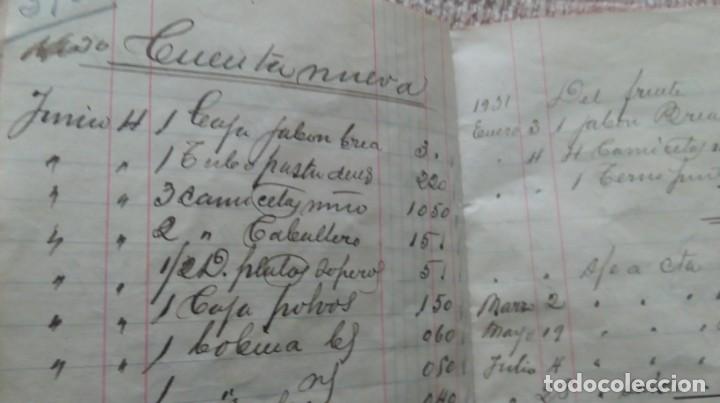 Cuenta nueva
Junio 4 1 Caja jabon brea 3.
" " 1 Tubo pasta dens 220
" " 3 camicetas niño 1050
" " 2 " Caballero 15.
" " 1/2 D. platos soperos 5.
" " 1 Caja polvos 150
" " 1 bobina 060
" " 1 " 050
040
1931 Del frente
Enero 3 1 jabon Brea
" " 4 4 Camicetas
" " 1 Terno
" " a cta
Marzo 2 " "
Mayo 19 " "
Julio 4 " "
todocoleccion
todocoleccion.net